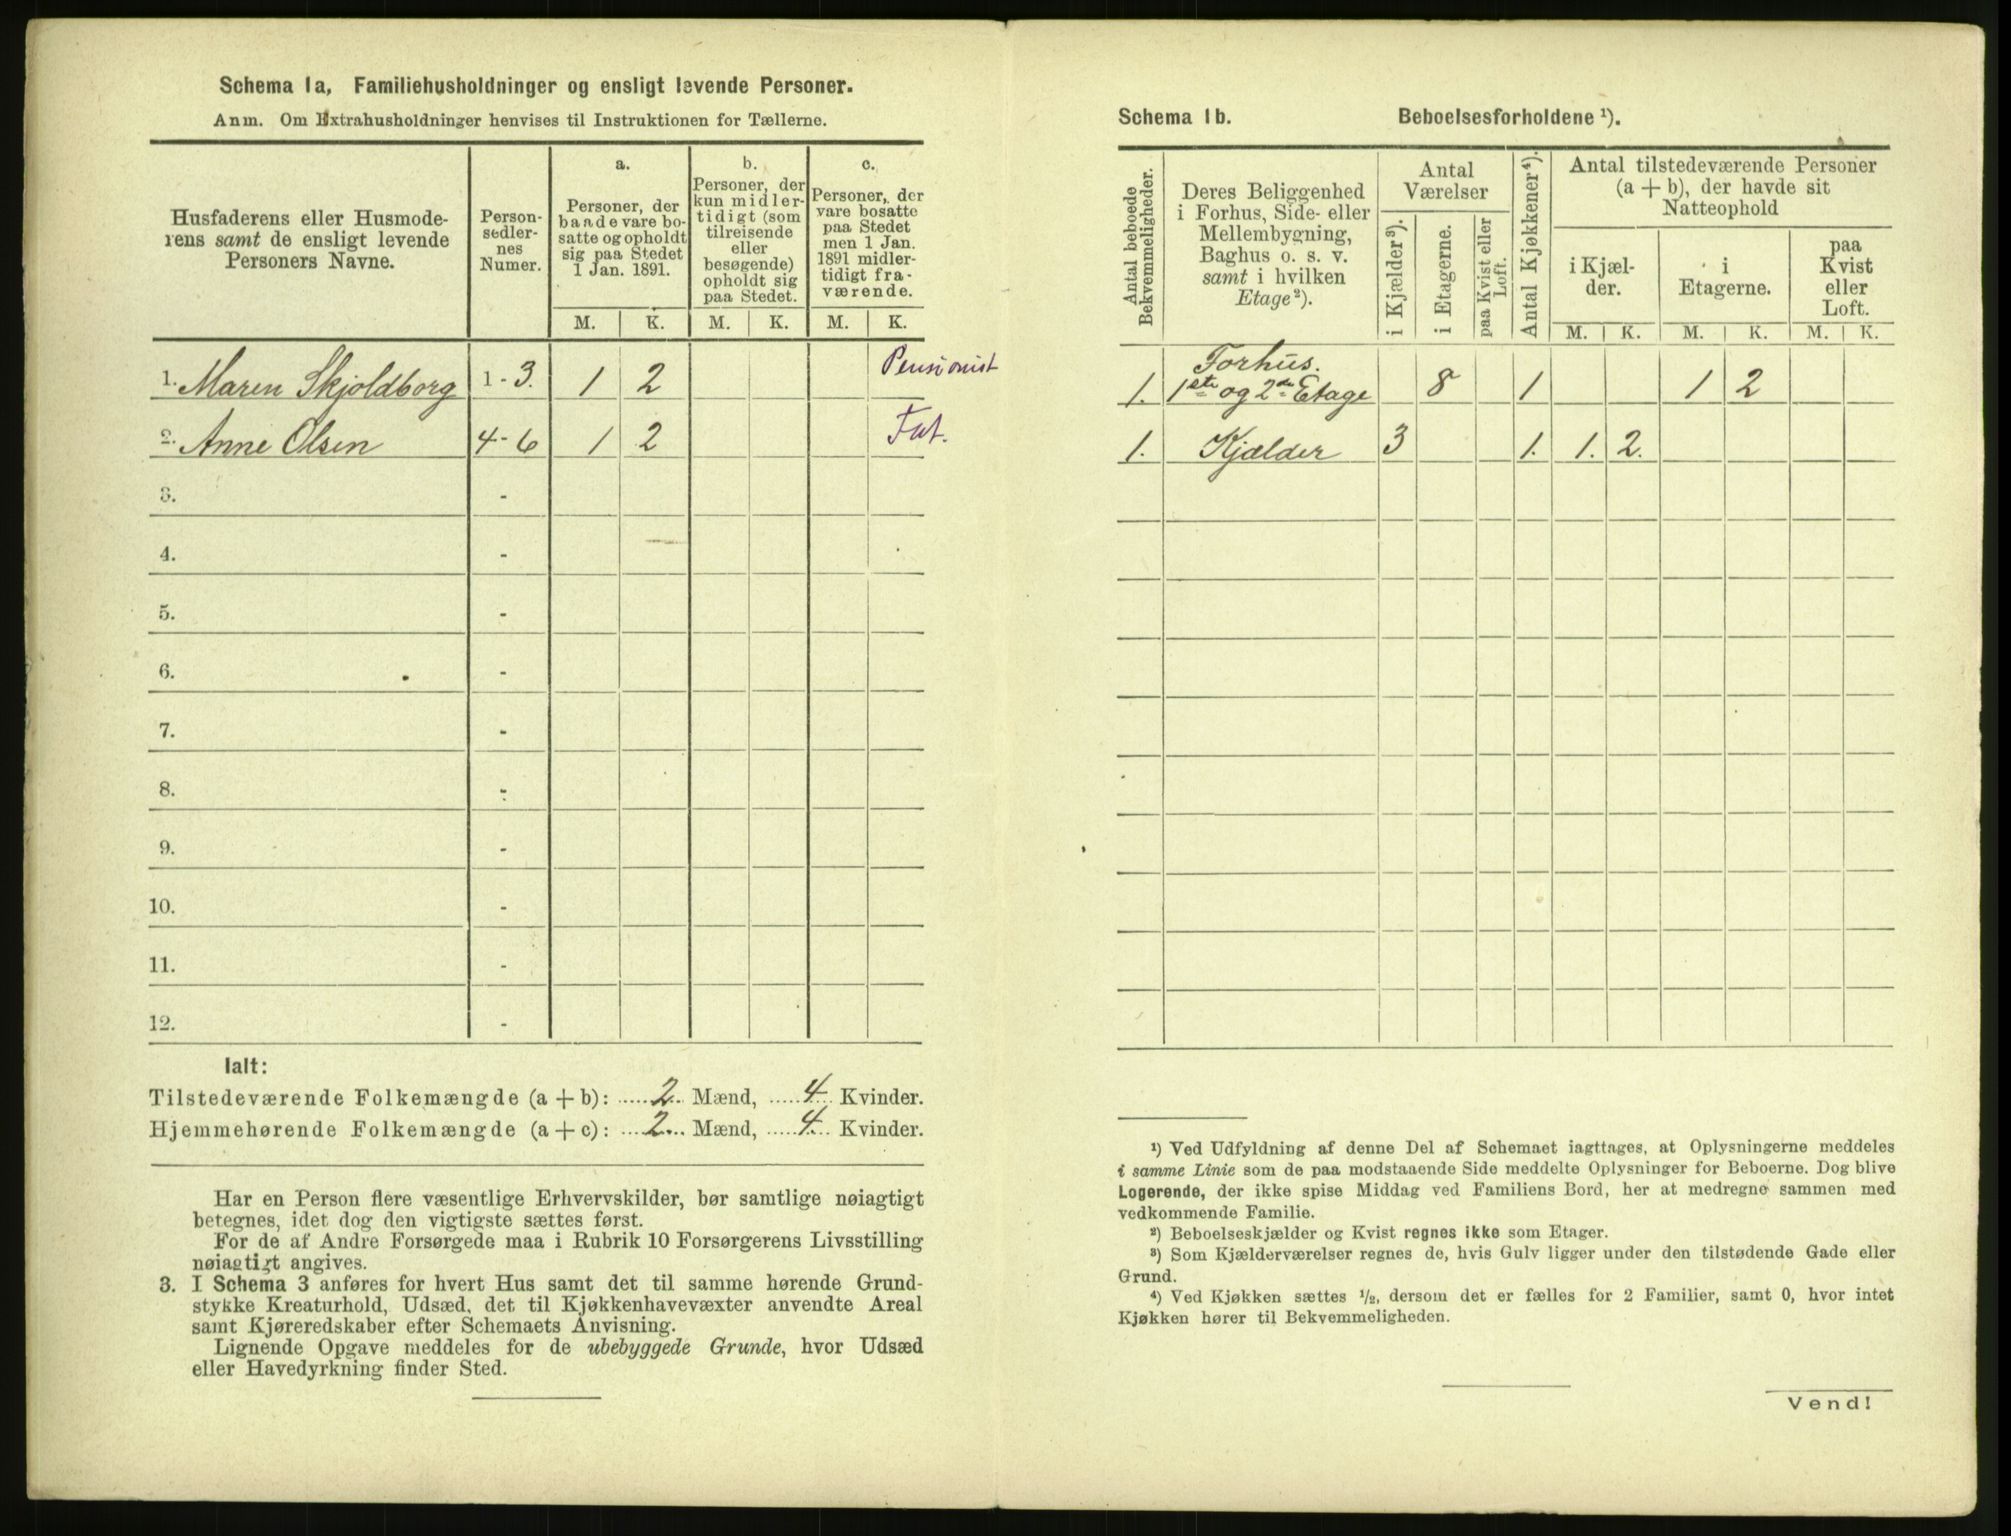 Schema 1a, Familiehusholdninger og ensligt levende Personer.
Anm. Om Extrahusholdninger henvises til Instruktionen for Tællerne.
Husfaderens eller Husmode-
rens samt de ensligt levende
Personers Navne.
Person-
sedler-
nes
Numer.
a.
Personer, der
baade vare bo-
satte og opholdt
sig paa Stedet
1 Jan. 1891.
b.
Personer, der
kun midler-
tidigt (som
tilreisende
eller
besøgende)
opholdt sig
paa Stedet.
c.
Personer, der
vare bosatte
paa Stedet
men 1 Jan.
1891 midler-
tidigt fra-
værende.
M. K. M. K. M. K.
1. Maren Skjoldborg 1-3. 1 2 Pensionist
2. Anne Olsen 4-6 1 2 Fat.
3. -
4. -
5. -
6. -
7. -
8. -
9. -
10. -
11. -
12. -
Ialt:
Tilstedeværende Folkemængde (a + b): 2 Mænd, 4 Kvinder.
Hjemmehørende Folkemængde (a + c): 2 Mænd, 4 Kvinder.
Har en Person flere væsentlige Erhvervskilder, bør samtlige nøiagtigt
betegnes, idet dog den vigtigste sættes først.
For de af Andre Forsørgede maa i Rubrik 10 Forsørgerens Livsstilling
nøiagtigt angives.
3. I Schema 3 anføres for hvert Hus samt det til samme hørende Grund-
stykke Kreaturhold, Udsæd, det til Kjøkkenhavevæxter anvendte Areal
samt Kjøreredskaber efter Schemaets Anvisning.
Lignende Opgave meddeles for de ubebyggede Grunde, hvor Udsæd
eller Havedyrkning finder Sted.
Schema 1b. Beboelsesforholdene ¹).
Antal beboede
Bekvemmeligheder.
Deres Beliggenhed
i Forhus, Side- eller
Mellembygning,
Baghus o. s. v.
samt i hvilken
Etage ²).
Antal
Værelser
i Kjælder ³).
i Etagerne.
paa Kvist eller
Loft.
Antal Kjøkkener ⁴).
Antal tilstedeværende Personer
(a + b), der havde sit
Natteophold
i Kjæl-
der.
i
Etagerne.
paa
Kvist
eller
Loft.
M. K. M. K. M. K.
Forhus.
1. 1ste og 2den Etage 8 1 1 2
1. Kjælder 3 1. 1. 2.
¹) Ved Udfyldning af denne Del af Schemaet iagttages, at Oplysningerne meddeles
i samme Linie som de paa modstaaende Side meddelte Oplysninger for Beboerne. Dog blive
Logerende, der ikke spise Middag ved Familiens Bord, her at medregne sammen med
vedkommende Familie.
²) Beboelseskjælder og Kvist regnes ikke som Etager.
³) Som Kjælderværelser regnes de, hvis Gulv ligger under den tilstødende Gade eller
Grund.
⁴) Ved Kjøkken sættes ½, dersom det er fælles for 2 Familier, samt 0, hvor intet
Kjøkken hører til Bekvemmeligheden.
Vend!